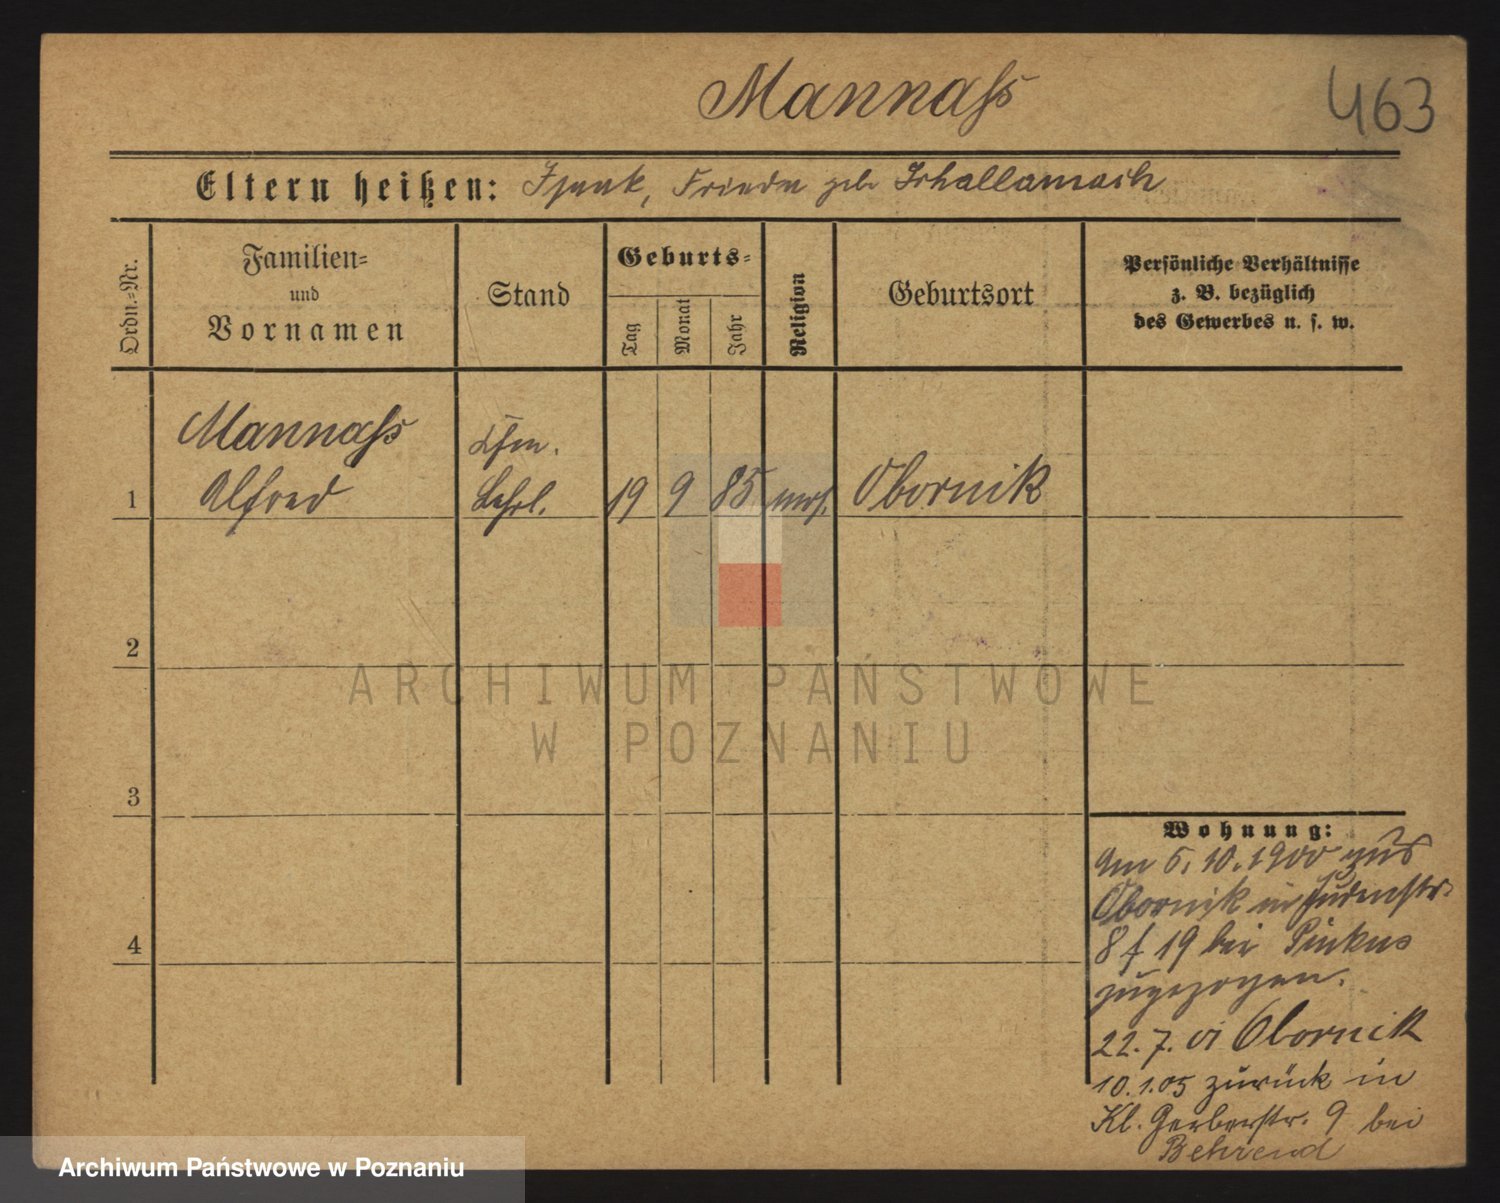 Mannaſs
463
Eltern heißen: Isaak, Frieda geb
Ordn.=Nr.
Familien=
und
Vornamen
Stand
Geburts=
Tag
Monat
Jahr
Religion
Geburtsort
Persönliche Verhältnisse
z. B. bezüglich
des Gewerbes u. s. w.
Mannaſs
1 Alfred Lehrl. 19 9 85 mos. Obornik
2
3
4
Wohnung:
Am 5.10.1900 aus
Obornik in Judenstr.
8 f 19 bei Pinkus
zugezogen.
22.7. 01 Obornik
10.1.05 zurück in
Kl. Gerberstr. 9 bei
Behrend
ARCHIWUM PAŃSTWOWE
W POZNANIU
Archiwum Państwowe w Poznaniu